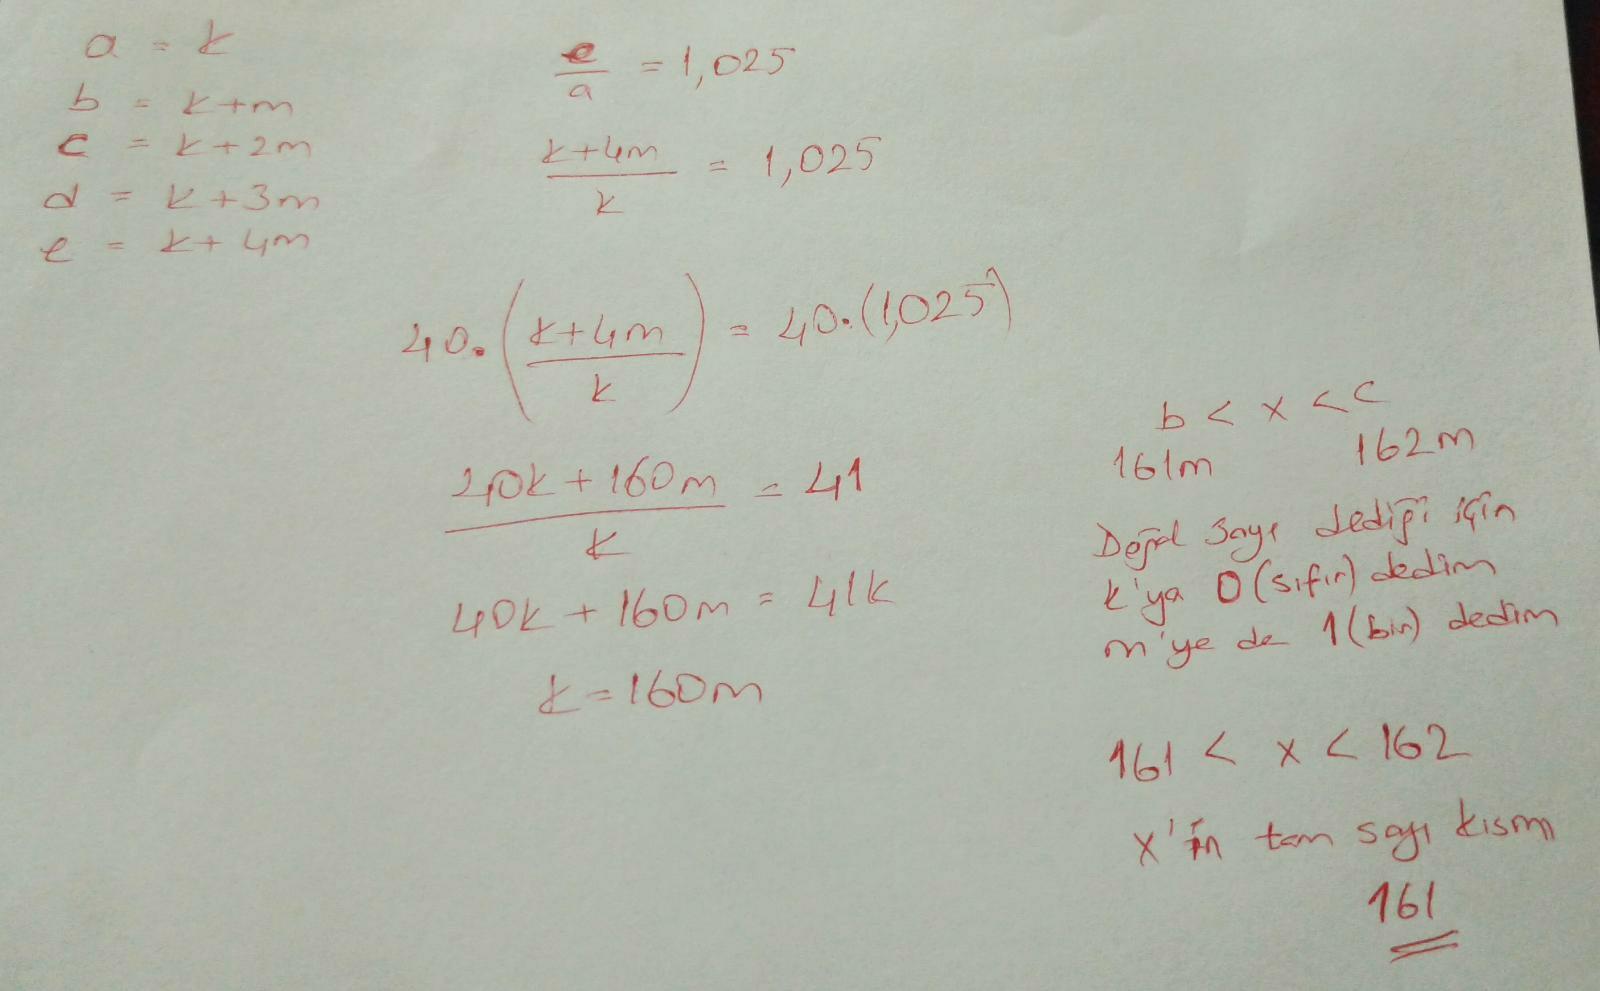 a = k
b = k+m
c = k+2m
d = k+3m
e = k+4m
e/a = 1,025
k+4m/k = 1,025
40.(k+4m/k) = 40.(1,025)
40k+160m/k = 41
40k+160m = 41k
k=160m
b < x < c
161m 162m
Doğal sayı dediği için
k'ya 0 (sıfır) dedim
m'ye de 1 (bir) dedim
161 < x < 162
x'in tam sayı kısmı
161